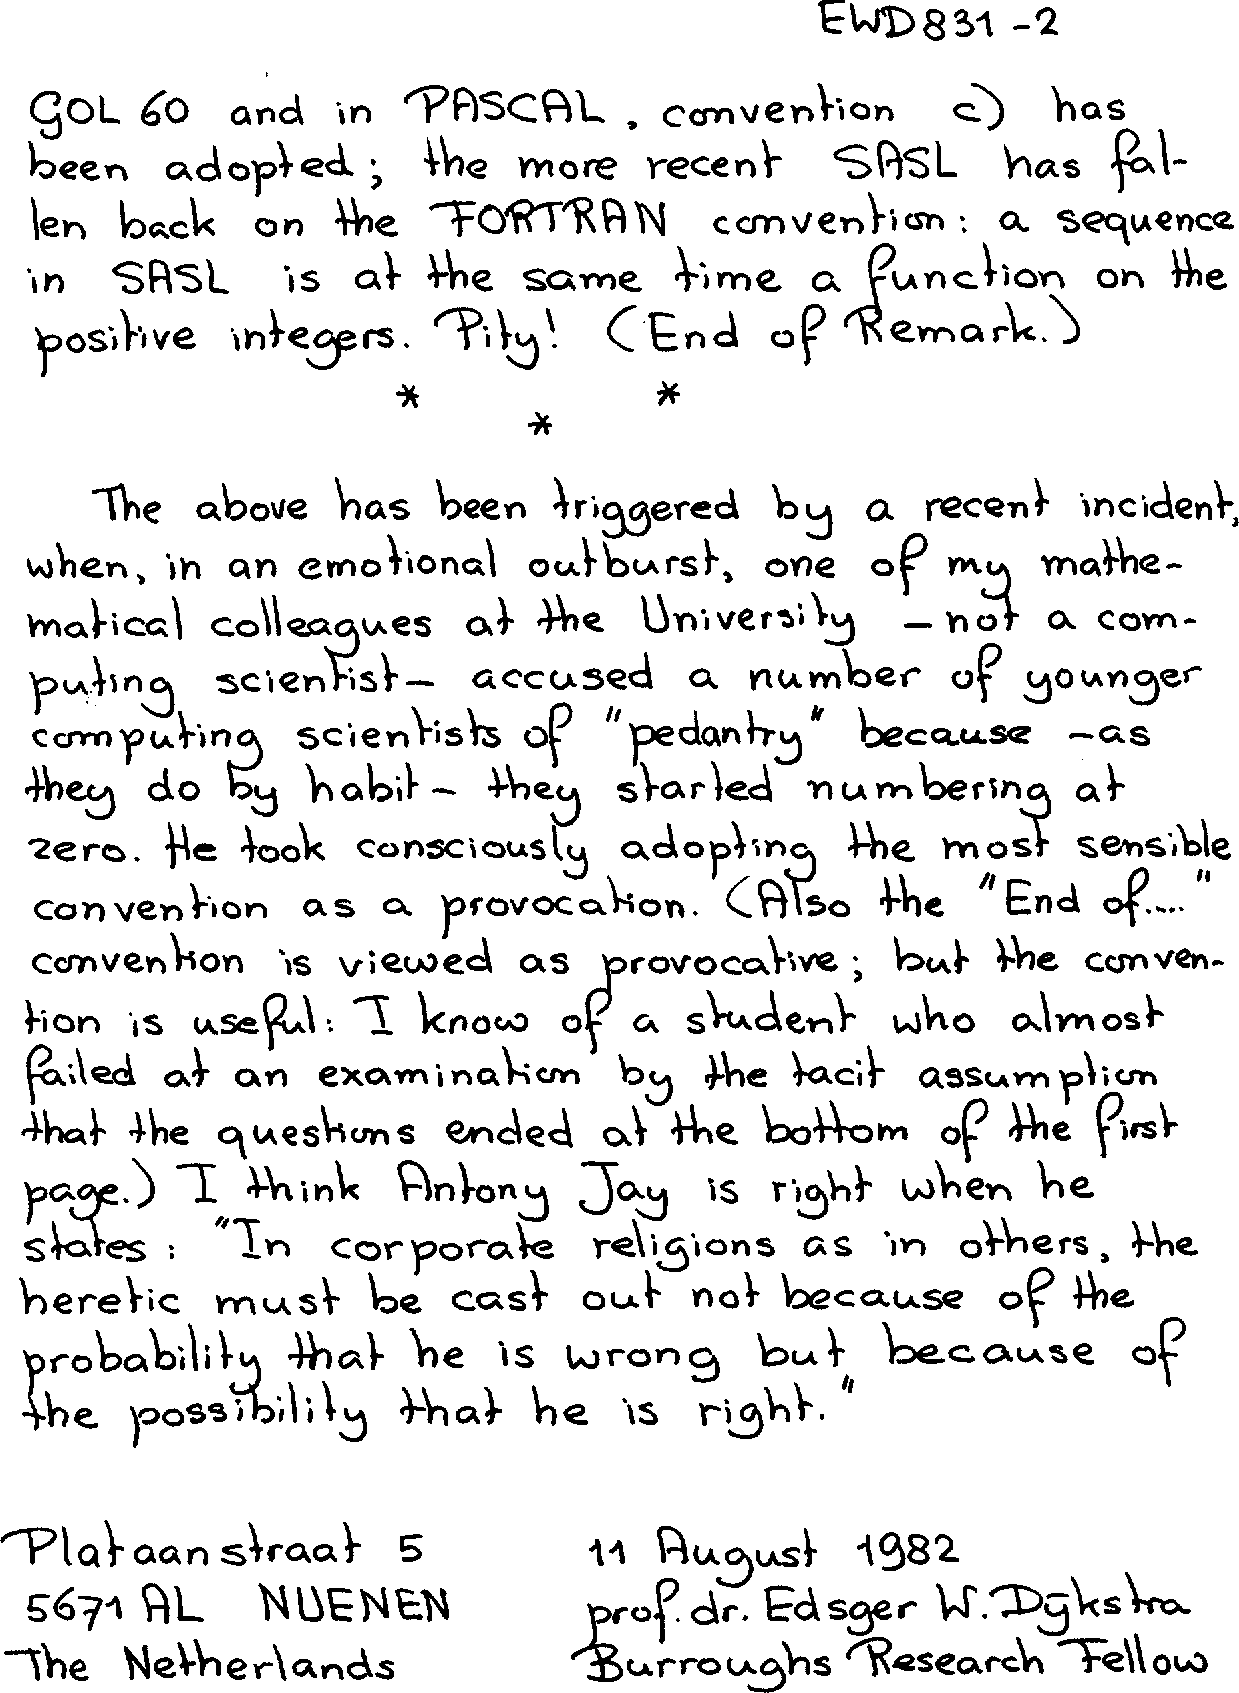 EWD831-2
GOL 60 and in PASCAL, convention c) has
been adopted; the more recent SASL has fal-
len back on the FORTRAN convention: a sequence
in SASL is at the same time a function on the
positive integers. Pity! (End of Remark.)
* *
*
The above has been triggered by a recent incident,
when, in an emotional outburst, one of my mathe-
matical colleagues at the University -not a com-
puting scientist- accused a number of younger
computing scientists of "pedantry" because -as
they do by habit- they started numbering at
zero. He took consciously adopting the most sensible
convention as a provocation. (Also the "End of...."
convention is viewed as provocative; but the conven-
tion is useful: I know of a student who almost
failed at an examination by the tacit assumption
that the questions ended at the bottom of the first
page.) I think Antony Jay is right when he
states: "In corporate religions as in others, the
heretic must be cast out not because of the
probability that he is wrong but because of
the possibility that he is right."
Plataanstraat 5
5671 AL NUENEN
The Netherlands
11 August 1982
prof. dr. Edsger W. Dijkstra
Burroughs Research Fellow